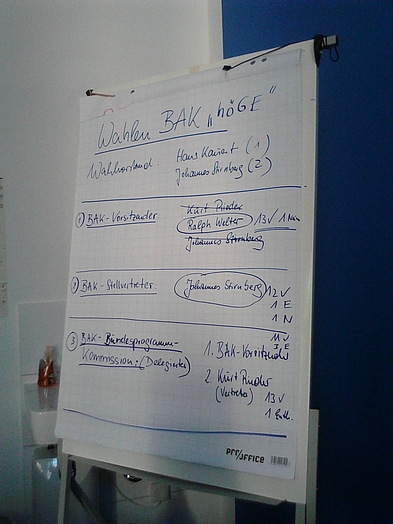 Wahlen BAK „höGE"
Wahlvorstand: Hans Kaisert (1)
Johannes Stirnberg (2)
① BAK-Vorsitzender: Kurt Rieder
Ralph Welter 13 V / 1 Nein
Johannes Stirnberg
② BAK-Stellvertreter: Johannes Stirnberg 12 V
1 E
1 N
③ BAK-Bundesprogramm-
Kommission: (Delegierter)
11 V
3 E
1. BAK-Vorsitzender
2. Kurt Rieder
(Vertreter) 13 V
1 Enth.
proOFFICE